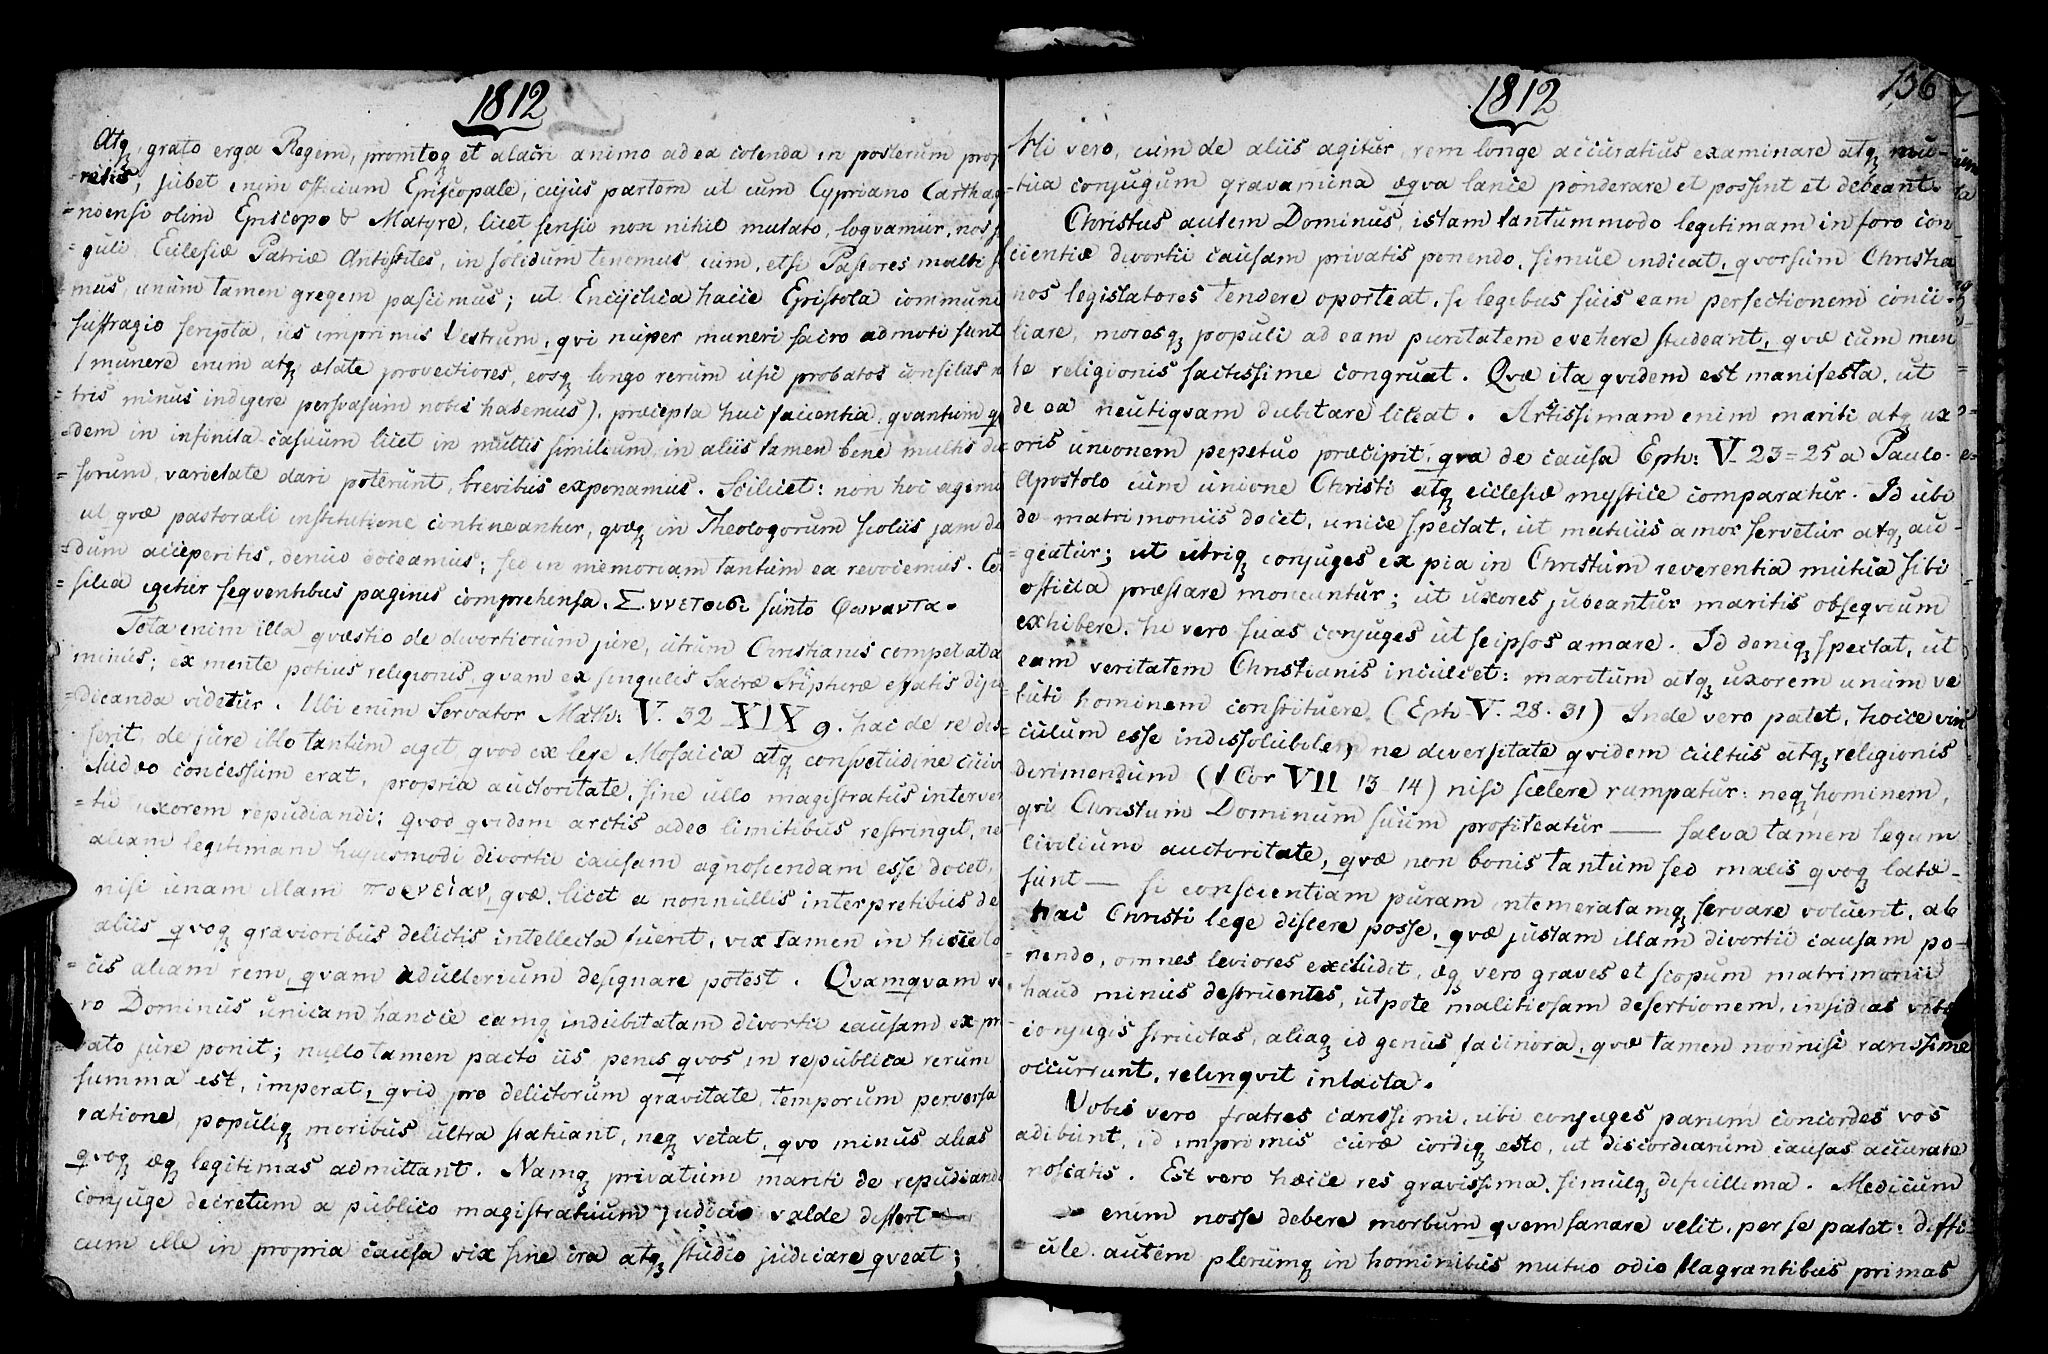 1812
Atqꝫ grato erga Regem, promtoqꝫ et alacri animo ad ea colenda in posterum prop
-retis, jubet enim officium Episcopale, cujus partem ut cum Cypriano Carthag
=nensi olim Episcopo & Matyre, licet sensu non nihil mutato, loqvamur, nos s
=guli Ecclesiæ Patriæ Antistites, in solidum tenemus cum, etsi Pastores multi s
=mus, unum tamen gregem pascimus; ut Encyclica hacce Epistola communi
suffragio scripta, iis imprimis Vestrum, qvi nuper muneri sacro admoti sunt
(munere enim atqꝫ ætate provectiores, eosqꝫ longo rerum usu probatos consiliis n
=tris minus indigere persvasum nobis habemus), præcepta huc facientia, qvantum qv
=dem in infinita casuum licet in multis similium, in aliis tamen bene multis di
=sorum, varietate dari poterunt, brevibus exponamus. Scilicet: non hoc agimu
ut qvæ pastorali institutione contineantur, qvæqꝫ in Theologorum scolis jam du
=dum acceperitis, denuo doceamus; sed in memoriam tantum ea revocemus. Co
=silia igitur seqventibus paginis comprehensa. Συνετοισι sunto φωναντα.
Tota enim illa qvæstio de divortiorum jure, utrum Christianis competat a
minus; ex mente potius religionis, qvam ex singulis Sacræ Scripturæ effatis diju
=dicanda videtur. Ubi enim Servator Math: V. 32 XIX 9. hac de re dis=
serit, de jure illo tantum agit qvod ex lege Mosaica atqꝫ consvetudine cuiv
Judæo concessum erat, propria auctoritate, sine ullo magistratus interven
=tu uxorem repudiandi; qvod qvidem arctis adeo limitibus restringit, ne
aliam legitimam hujusmodi divortii causam agnoscendam esse docet,
nisi unam illam πορνείαν, qvæ, licet a nonnullis interpretibus de
aliis qvoqꝫ gravioribus delictis intellecta fuerit, vix tamen in hisce lo
=cis aliam rem, qvam adulterium designare potest. Qvamqvam ve
ro Dominus unicam hancce eamqꝫ indubitatam divortii causam ex pri
=vato jure ponit; nullo tamen pacto iis, penes qvos in republica rerum
summa est, imperat, qvid pro delictorum gravitate, temporum perversa
ratione, populiqꝫ moribus ultra statuant, neqꝫ vetat, qvo minus alias
qvoqꝫ æqꝫ legitimas admittant. Namqꝫ privatum mariti de repudianda
conjuge decretum a publico magistratuum judicio valde differt—
cum ille in propria causa vix sine ira atqꝫ studio judicare qveat;
1812
136
Hi vero, cum de aliis agitur, rem longe accuratius examinare atqꝫ mu-
-tua conjugum gravamina æqva lance ponderare et possint et debeant.
Christus autem Dominus, istam tantummodo legitimam in foro con-
scientiæ divortii causam privatis ponendo, simul indicat, qvorsum Christia
nos legislatores tendere oporteat, si legibus suis eam perfectionem conci-
liare, moresqꝫ populi ad eam puritatem evehere studeant, qvæ cum men
te religionis sactissime congruat. Qvæ ita qvidem est manifesta, ut
de ea neutiqvam dubitare liceat. Artissimam enim mariti atqꝫ ux
oris unionem pepetuo præcipit, qva de causa Eph: V 23=25 a Paulo
Apostolo cum unione Christi atqꝫ ecclesiæ mystice comparatur. Id ubi
de matrimoniis docet, unice spectat, ut mutuus amor servetur atqꝫ au-
=geatur; ut utriqꝫ conjuges ex pia in Christum reverentia mutua sibi
officia præstare moneantur; ut uxores jubeantur maritis obseqvium
exhibere, hi vero suas conjuges ut seipsos amare. Id deniqꝫ spectat, ut
eam veritatem Christianis inculcet: maritum atqꝫ uxorem unum ve
luti hominem constituere (Eph V. 28. 31) Inde vero patet, hocce vin
culum esse indissolubile, ne diversitate qvidem cultus atqꝫ religionis
dirimendum (1 Cor VII 13 14) nisi scelere rumpatur: neqꝫ hominem,
qvi Christum Dominum suum profiteatur — salva tamen legum
civilium auctoritate, qvæ non bonis tantum sed malis qvoqꝫ latæ
sunt — si conscientiam puram intemeratamqꝫ servare voluerit, ab
hac Christi lege discere posse, qvæ justam illam divortii causam po-
nendo, omnes leviores excludit, æqꝫ vero graves et scopum matrimonii
haud minus destruentes, utpote malitiosam desertionem, insidias vitæ
conjugis structas, aliaqꝫ id genus facinora, qvæ tamen nonnisi rarissime
occurrunt, relinqvit intacta.
Vobis vero fratres carissimi, ubi conjuges parum concordes vos
adibunt, id imprimis curæ cordiqꝫ esto, ut discordiarum causas accurate
noscatis. Est vero hæcce res gravissima, simulqꝫ dificillima. Medicum
enim nosse debere morbum qvem sanare velit, per se patet: diffi-
cile autem plerumqꝫ in hominibus mutuo odio flagrantibus primas